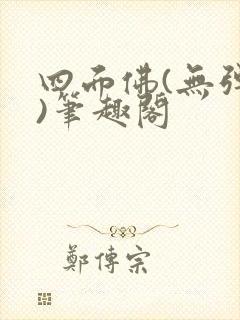 四而佛(無彈
)筆趣閣
鄭傳宗